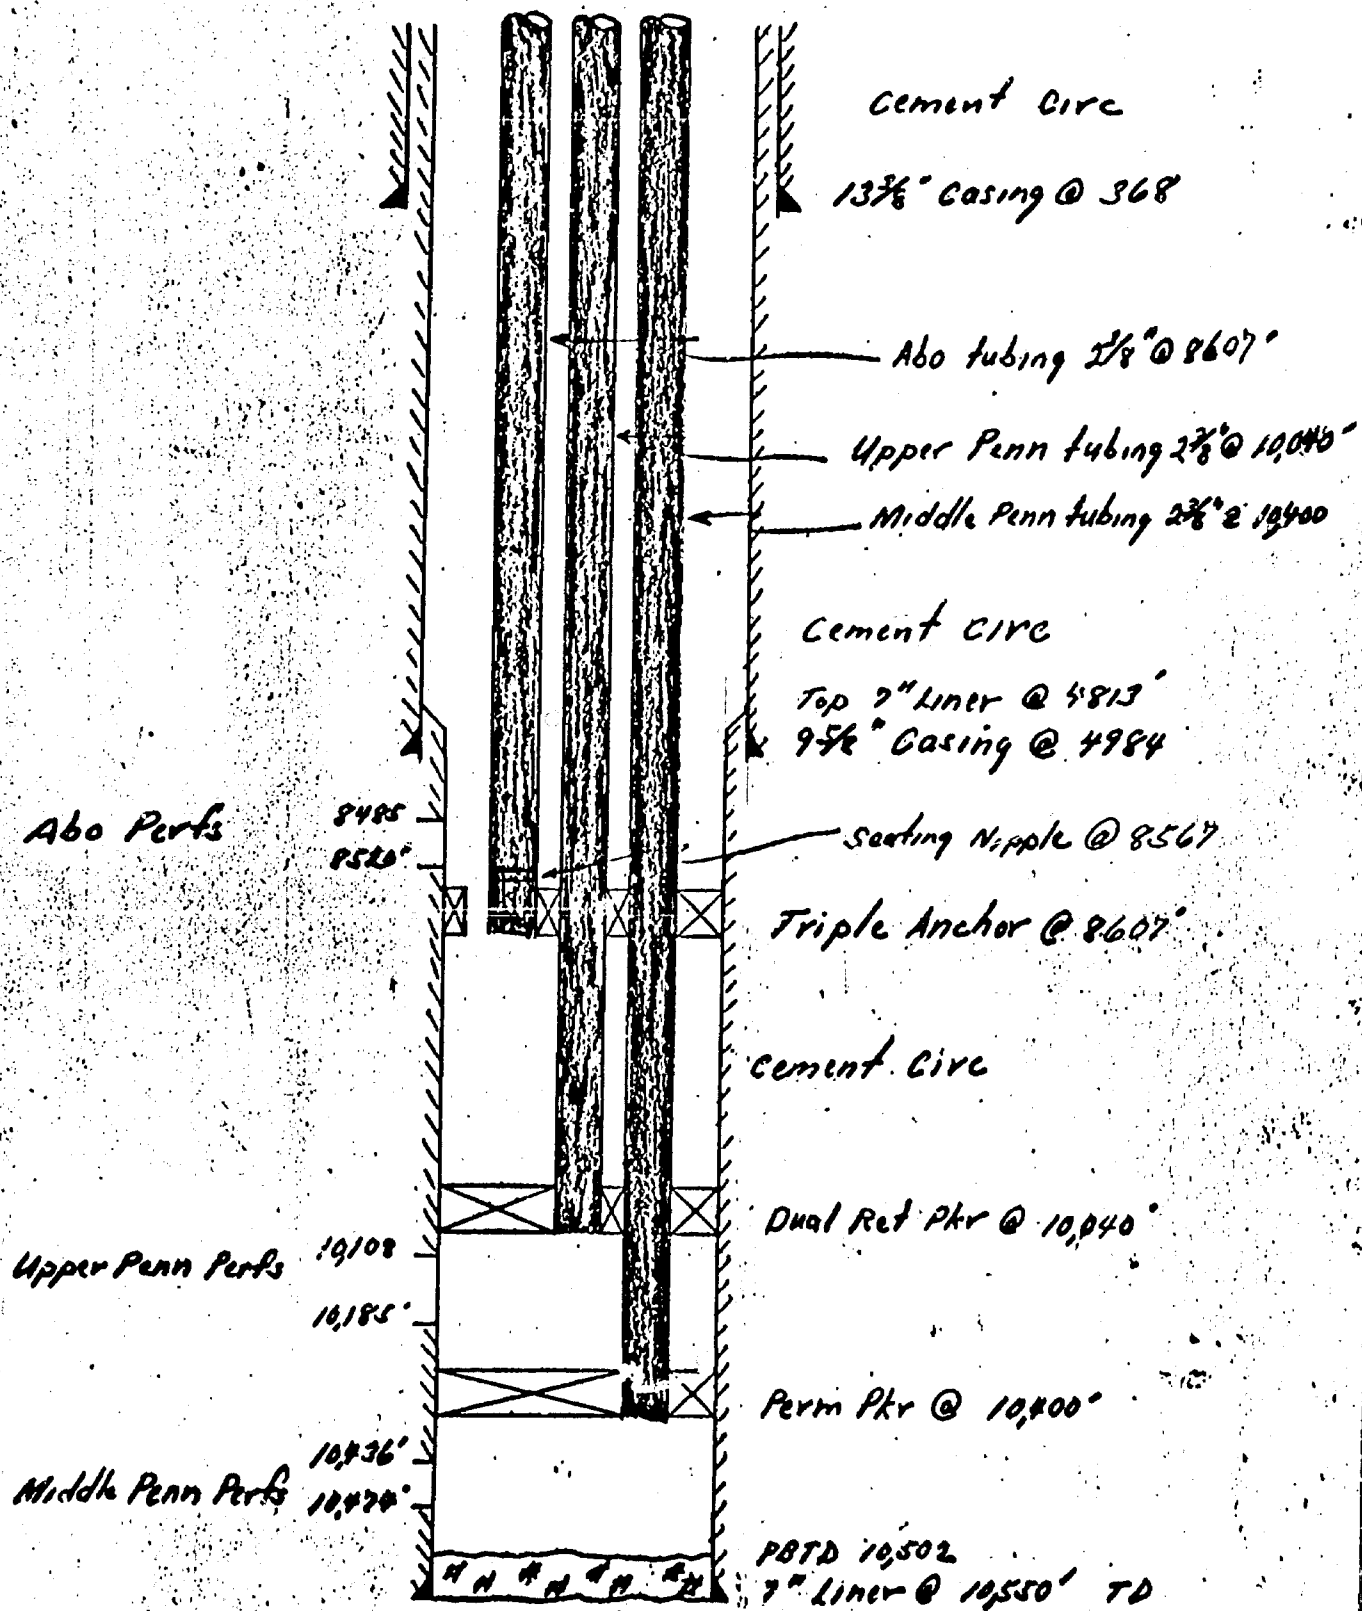 Cement Circ
13 3/8" Casing @ 368'
Abo tubing 2 3/8" @ 8607'
Upper Penn tubing 2 3/8" @ 10,040'
Middle Penn tubing 2 3/8" @ 10,400
Cement Circ
Top 7" Liner @ 4813'
9 5/8" Casing @ 4984
Abo Perfs
8485
8520'
Seating Nipple @ 8567
Triple Anchor @ 8607'
Cement Circ
Dual Ret Pkr @ 10,040'
Upper Penn Perfs
10,108
10,185'
Perm Pkr @ 10,400'
Middle Penn Perfs
10,436'
10,474'
PBTD 10,502
7" Liner @ 10,550' TD